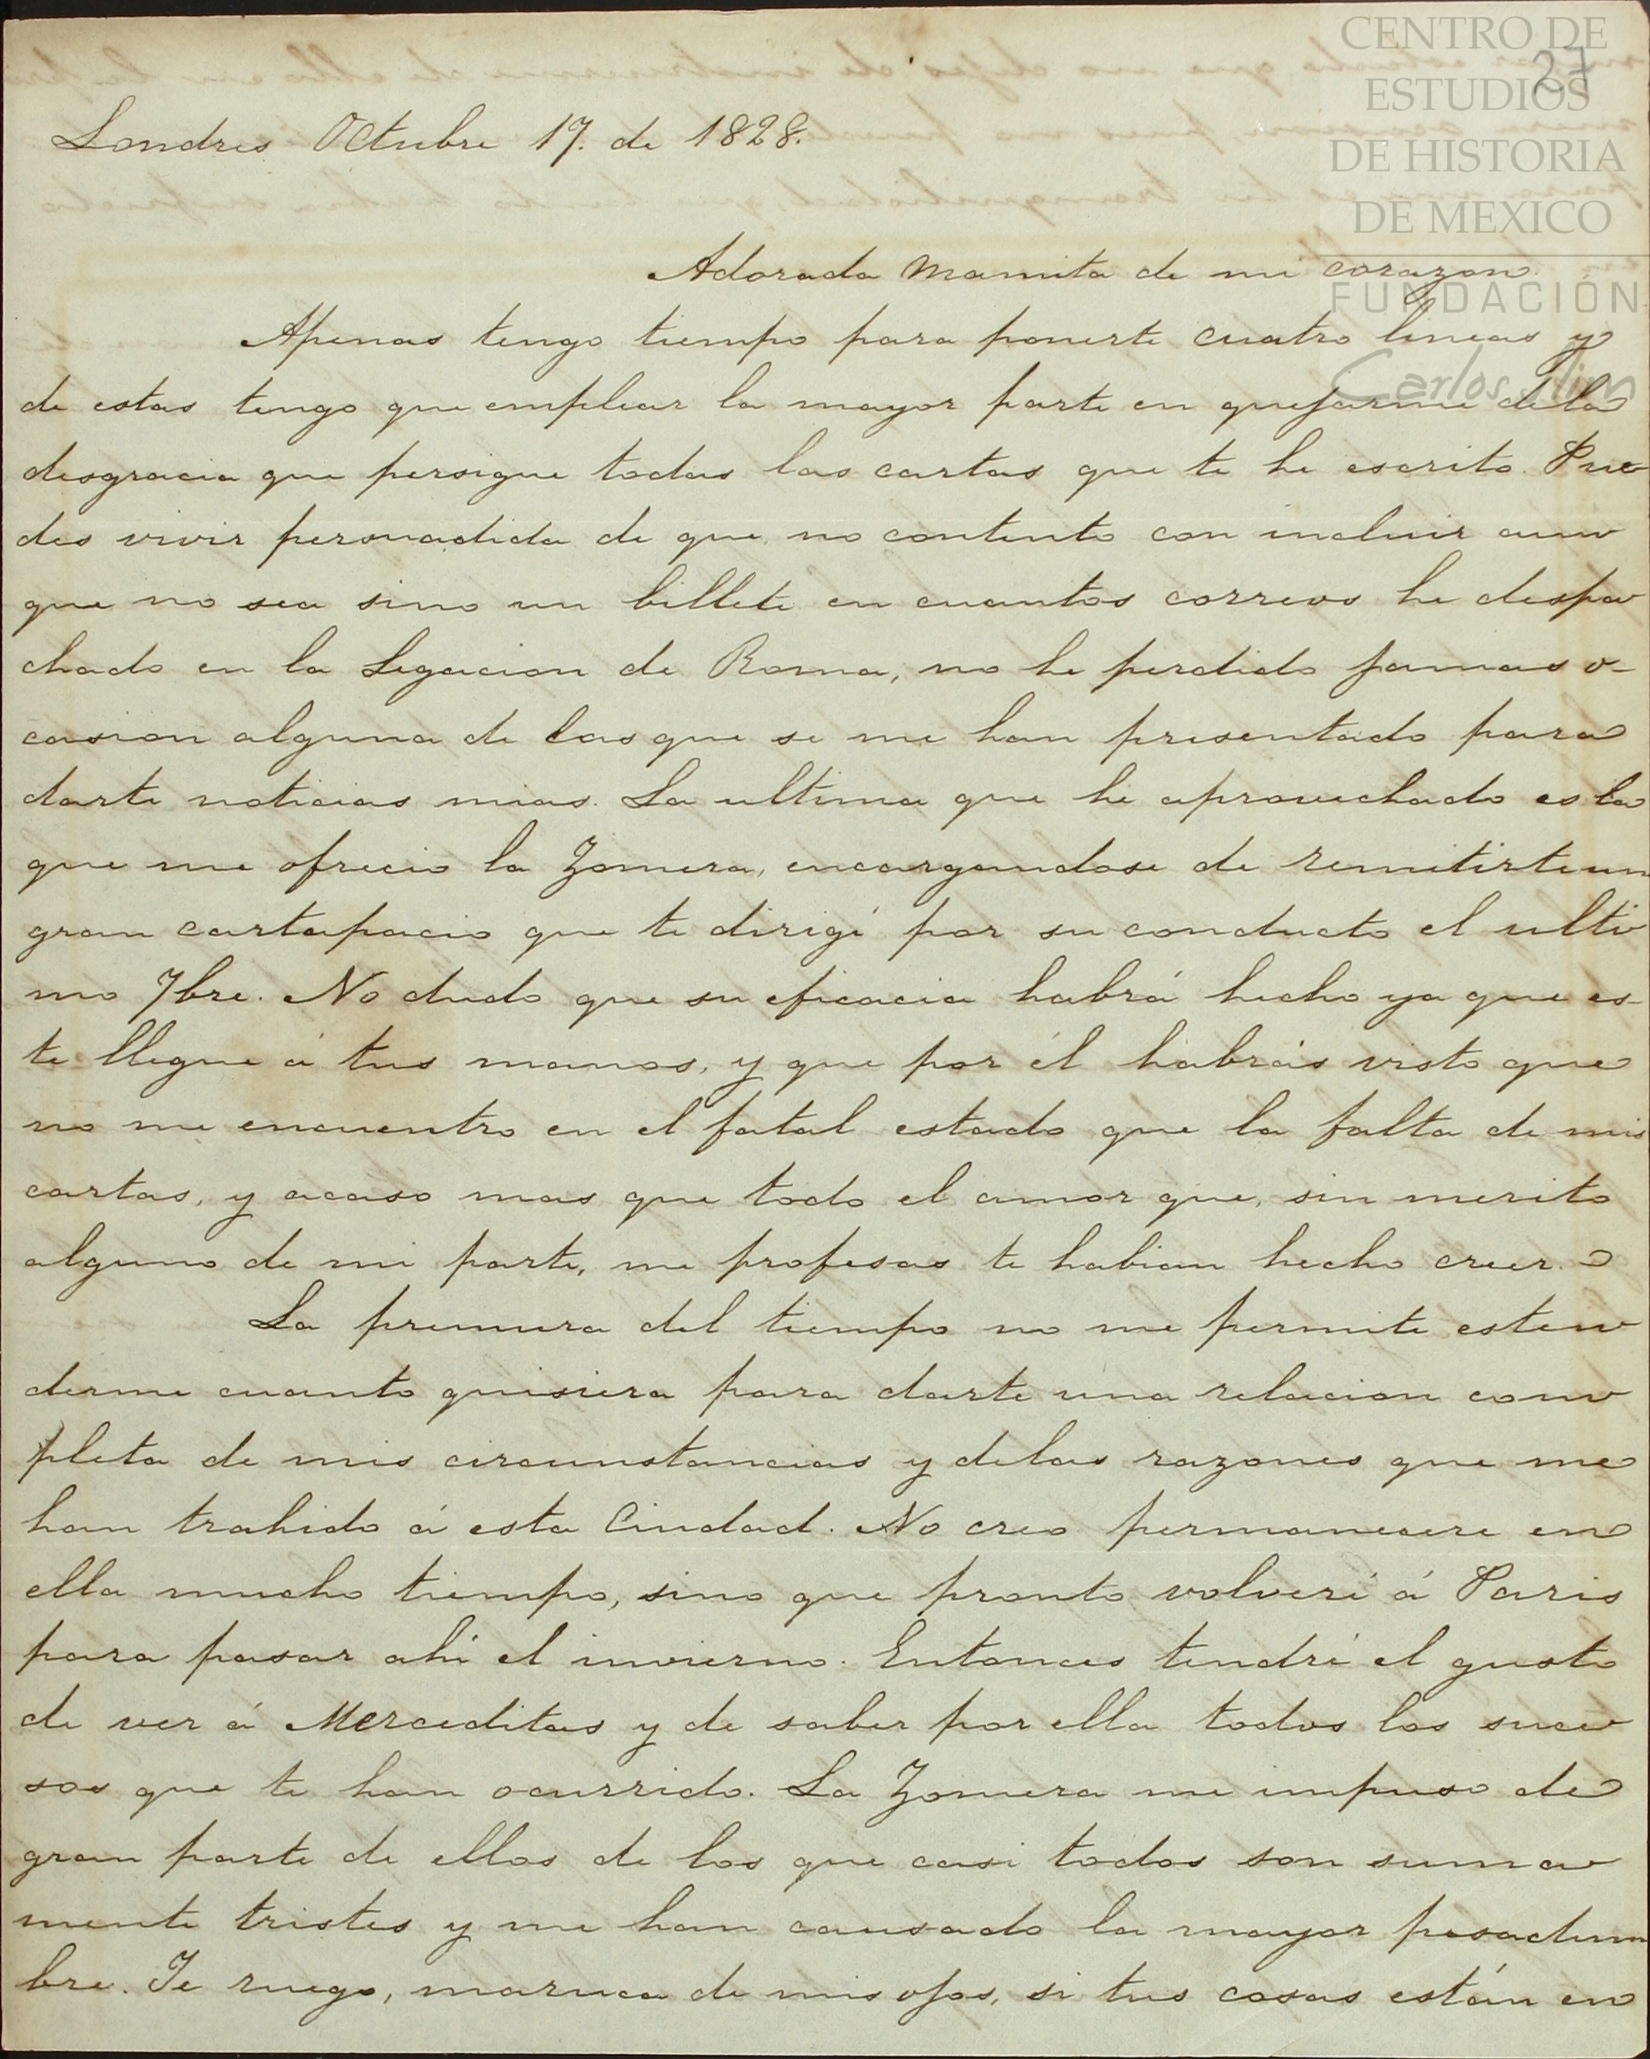 CENTRO DE
ESTUDIOS
DE HISTORIA
DE MEXICO
FUNDACIÓN
Carlos Slim
27
Londres Octubre 17. de 1828.
Adorada Mamita de mi corazon.
Apenas tengo tiempo para ponerte cuatro lineas y
de estas tengo que emplear la mayor parte en quejarme dela
desgracia que persigue todas las cartas que te he escrito. Pue
des vivir persuadida de que no contento con incluir aun
que no sea sino un billete en cuantos correos he despa
chado en la Legacion de Roma, no he perdido jamas o-
casion alguna de las que se me han presentado para
darte noticias mias. La ultima que he aprovechado es la
que me ofrecio la Zomera, encargandose de remitirte un
gran cartapacio que te dirigí por su conducto el ulti
mo 7bre. No dudo que su eficacia habrá hecho ya que es-
te llegue á tus manos, y que por él habrás visto que
no me encuentro en el fatal estado que la falta de mis
cartas, y acaso mas que todo el amor que, sin merito
alguno de mi parte, me profesas te habian hecho creer.
La premura del tiempo no me permite esten
derme cuanto quisiera para darte una relacion com
pleta de mis circunstancias y delas razones que me
han trahido á esta Ciudad. No creo permanecere en
ella mucho tiempo, sino que pronto volveré á Paris
para pasar ahi el invierno. Entonces tendré el gusto
de ver á Merceditas y de saber por ella todos los suce
sos que te han ocurrido. La Zomera me impuso de
gran parte de ellos de los que casi todos son suma
mente tristes y me han causado la mayor pesadum
bre. Te ruego, maruca de mis ojos, si tus cosas están en